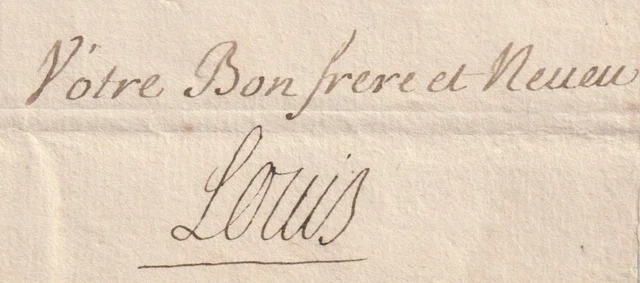 Vôtre Bon frere et Neveu
Louis